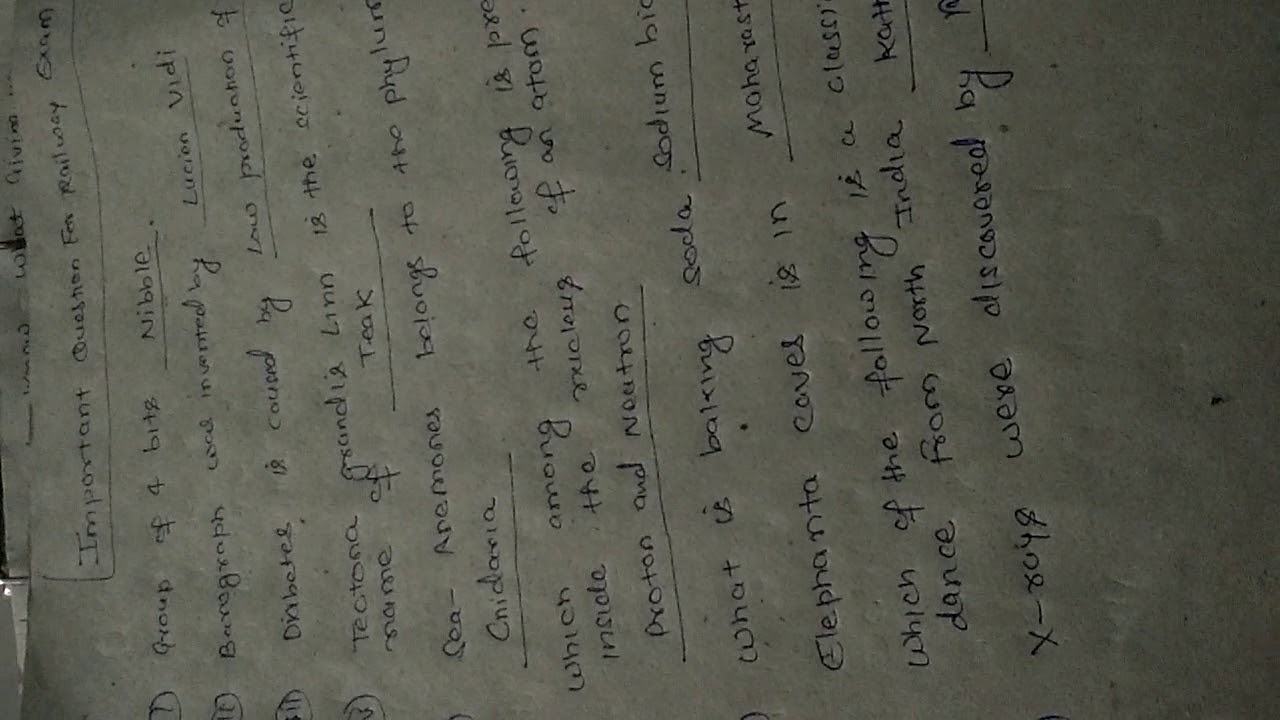 What Given
Important Question For Railway Exam
i) Group of 4 bits Nibble.
ii) Barograph was invented by Lucien Vidi
iii) Diabetes is caused by Law production of
iv) Tectona grandis Linn is the scientific
name of Teak
Sea- Anemones belongs to the phylum
Cnidaria
Which among the following is pre
inside the nucleus of an atom.
Proton and Neutron
What is baking soda. Sodium bic
Elephanta caves is in Maharast
Which of the following is a classi
dance from North India Kath
X-rays were discovered by